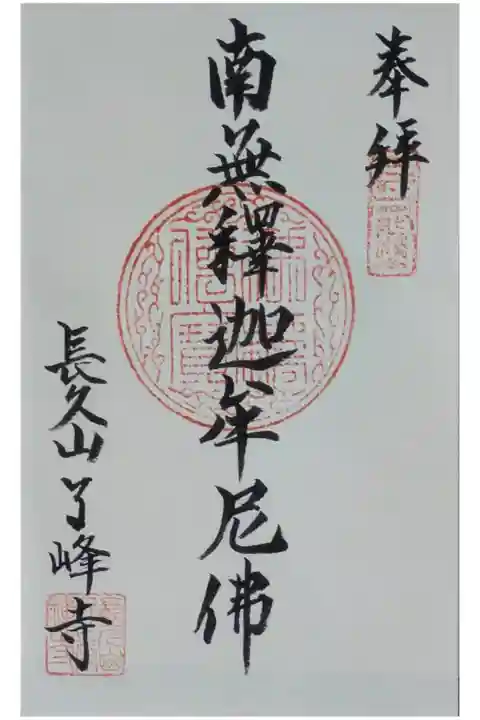 奉拜
南無釋迦牟尼佛
長久山了峰寺